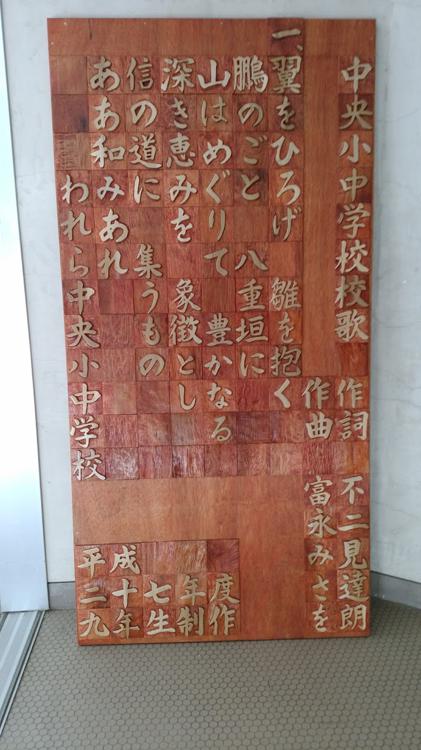 中央小中学校校歌 作詞 不二見達朗
作曲 富永みさを
一、翼をひろげ 雛を抱く
鵬のごと 八重垣に
山はめぐりて 豊かなる
深き恵みを 象徴とし
信の道に 集うもの
ああ和みあれ
われら中央小中学校
平成
二十七年度
九年生制作